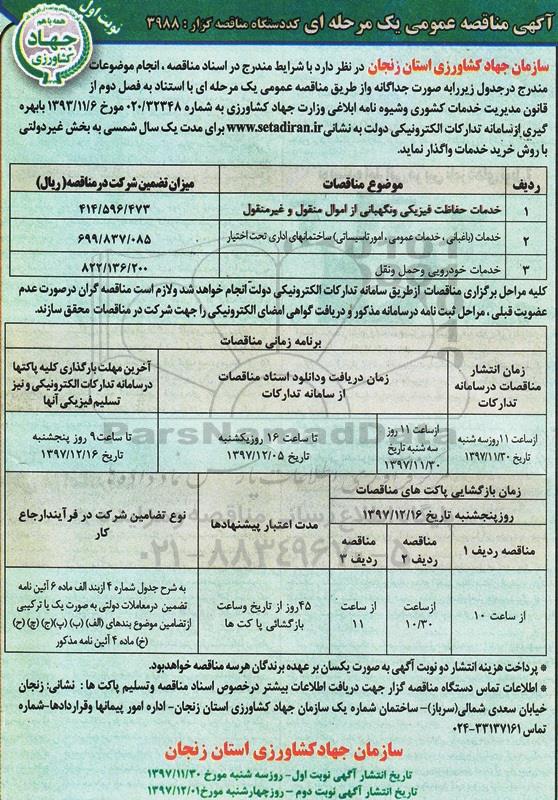 آگهی مناقصه عمومی یک مرحله ای کددستگاه مناقصه گزار : ۳۹۸۸
نوبت اول
همه با هم
جهاد
کشاورزی
سازمان جهاد کشاورزی استان زنجان در نظر دارد با شرایط مندرج در اسناد مناقصه ، انجام موضوعات
مندرج درجدول زیررابه صورت جداگانه واز طریق مناقصه عمومی یک مرحله ای با استناد به فصل دوم از
قانون مدیریت خدمات کشوری وشیوه نامه ابلاغی وزارت جهاد کشاورزی به شماره ۰۲۰/۳۲۳۴۸ مورخ ۱۳۹۳/۱۱/۶ بابهره
گیری ازسامانه تدارکات الکترونیکی دولت به نشانی www.setadiran.ir برای مدت یک سال شمسی به بخش غیردولتی
با روش خرید خدمات واگذار نماید.
ردیف موضوع مناقصات میزان تضمین شرکت در مناقصه( ریال)
۱ خدمات حفاظت فیزیکی ونگهبانی از اموال منقول و غیرمنقول ۴۱۴/۵۹۶/۴۷۳
۲ خدمات (باغبانی ، خدمات عمومی ، امور تاسیساتی) ساختمانهای اداری تحت اختیار ۶۹۹/۸۳۷/۰۸۵
۳ خدمات خودرویی وحمل ونقل ۸۲۲/۱۳۶/۲۰۰
کلیه مراحل برگزاری مناقصات ازطریق سامانه تدارکات الکترونیکی دولت انجام خواهد شد ولازم است مناقصه گران درصورت عدم
عضویت قبلی ، مراحل ثبت نامه درسامانه مذکور و دریافت گواهی امضای الکترونیکی را جهت شرکت در مناقصات محقق سازند.
برنامه زمانی مناقصات
زمان انتشار مناقصات درسامانه تدارکات
زمان دریافت ودانلود اسناد مناقصات از سامانه تدارکات
آخرین مهلت بارگذاری کلیه پاکتها درسامانه تدارکات الکترونیکی و نیز تسلیم فیزیکی آنها
ازساعت ۱۱روزسه شنبه تاریخ ۱۳۹۷/۱۱/۳۰
ازساعت ۱۱ روز سه شنبه تاریخ ۱۳۹۷/۱۱/۳۰
تا ساعت ۱۶ روزیکشنبه تاریخ ۱۳۹۷/۱۲/۰۵
تا ساعت ۹ روز پنجشنبه تاریخ ۱۳۹۷/۱۲/۱۶
زمان بازگشایی پاکت های مناقصات
روزپنجشنبه تاریخ ۱۳۹۷/۱۲/۱۶
مدت اعتبار پیشنهادها
نوع تضامین شرکت در فرآیندارجاع کار
مناقصه ردیف ۱
مناقصه ردیف ۲
مناقصه ردیف ۳
از ساعت ۱۰
ازساعت ۱۰/۳۰
از ساعت ۱۱
۴۵روز از تاریخ وساعت بازگشائی پاکت ها
به شرح جدول شماره ۴ ازبند الف ماده ۶ آئین نامه تضمین درمعاملات دولتی به صورت یک یا ترکیبی ازتضامین موضوع بندهای (الف) (ب) (پ)(ج) (چ) (ح) (خ) ماده ۴ آئین نامه مذکور
* پرداخت هزینه انتشار دو نوبت آگهی به صورت یکسان بر عهده برندگان هرسه مناقصه خواهدبود.
* اطلاعات تماس دستگاه مناقصه گزار جهت دریافت اطلاعات بیشتر درخصوص اسناد مناقصه وتسلیم پاکت ها : نشانی: زنجان
خیابان سعدی شمالی(سرباز)- ساختمان شماره یک سازمان جهاد کشاورزی استان زنجان- اداره امور پیمانها وقراردادها-شماره
تماس ۳۳۱۳۷۱۶۱-۰۲۴
سازمان جهادکشاورزی استان زنجان
تاریخ انتشار آگهی نوبت اول- روزسه شنبه مورخ ۱۳۹۷/۱۱/۳۰
تاریخ انتشار آگهی نوبت دوم - روزچهارشنبه مورخ ۱۳۹۷/۱۲/۰۱
ParsNamadData